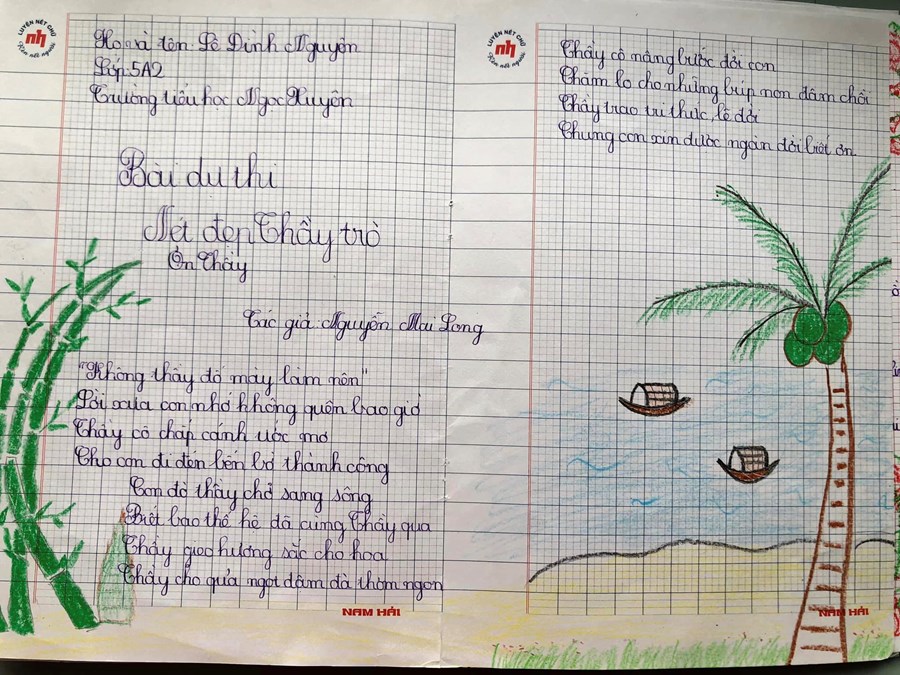 LUYỆN NÉT CHỮ
nh
Rèn nết người
Họ và tên: Lê Đình Nguyên
Lớp: 5A2
Trường tiểu học Ngọc Xuyên
Bài dự thi
Nét đẹp Thầy trò
Ơn Thầy
Tác giả: Nguyễn Mai Long
"Không thầy đố mày làm nên"
Lời xưa con nhớ không quên bao giờ
Thầy cô chắp cánh ước mơ
Cho con đi đến bến bờ thành công
Con đò thầy chở sang sông
Biết bao thế hệ đã cùng Thầy qua
Thầy gieo hương sắc cho hoa
Thầy cho quả ngọt đậm đà thơm ngon
NAM HẢI
LUYỆN NÉT CHỮ
nh
Rèn nết người
Thầy cô nâng bước đời con
Chăm lo cho những búp non đâm chồi
Thầy trao tri thức, lẽ đời
Chúng con xin được ngàn đời biết ơn
NAM HẢI